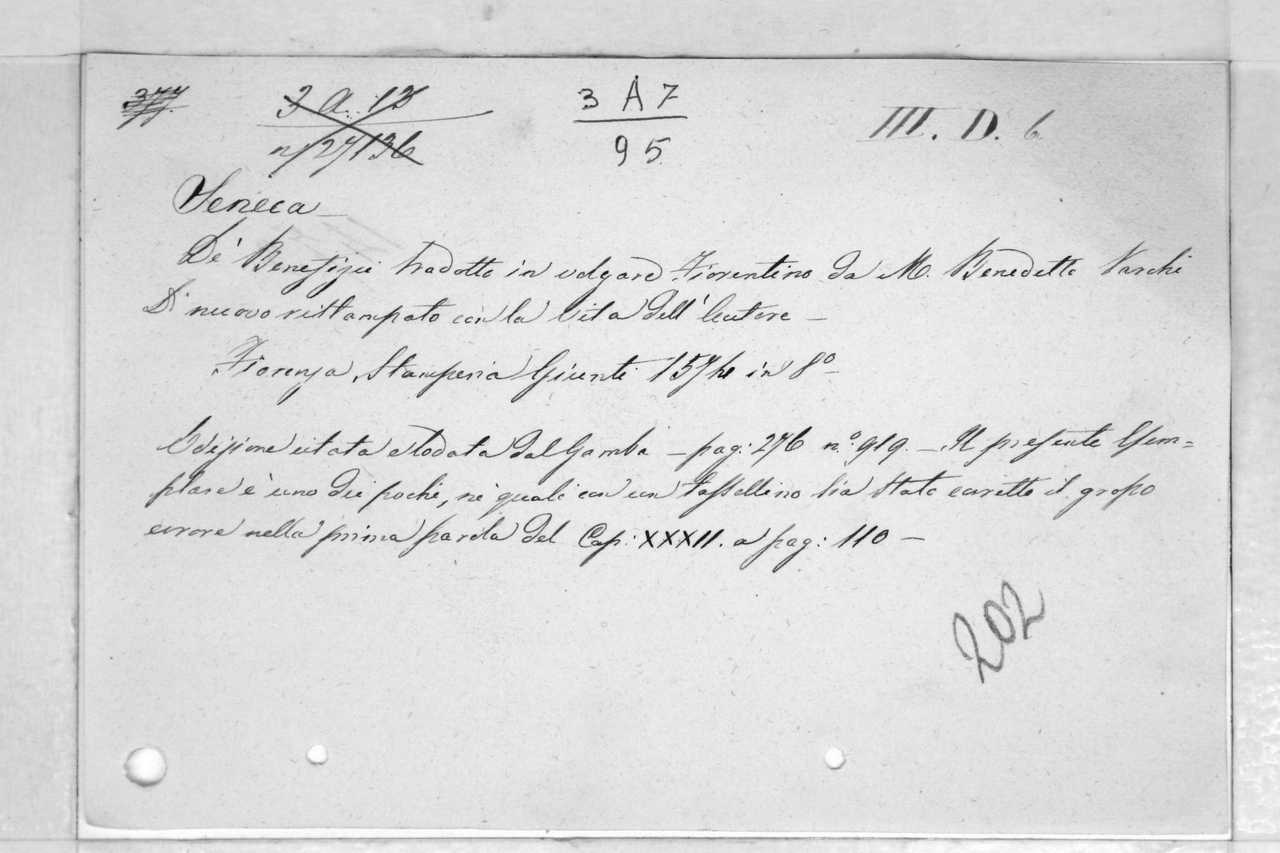 377 3 A. 13 3 A 7 III. D. 6
n/27/36 95
Seneca
De' Benefizii tradotto in volgare Fiorentino da M. Benedetto Varchi
Di nuovo ristampato con la Vita dell'Autore
Fiorenza, Stamperia Giunti 1574 in 8º
Edizione citata e lodata dal Gamba - pag: 276 nº. 919. - Il presente Esem=
plare è uno dei pochi, ne' quali con un tassellino sia stato corretto il grosso
errore nella prima parola del Cap: XXXII. a pag: 110 -
202